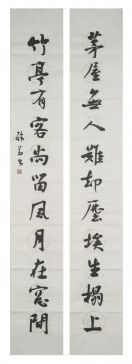 茅屋無人難却塵埃生榻上
竹亭有客尚留風月在窓間